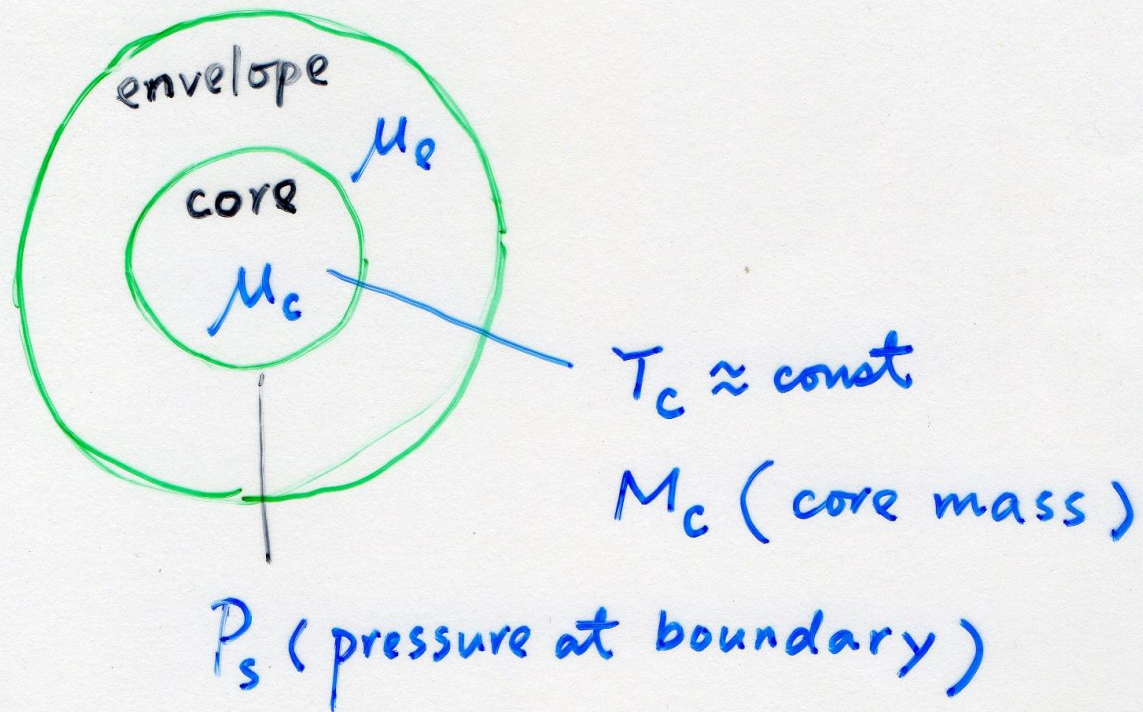 envelope
μe
core
μc
Tc ≈ const
Mc (core mass)
Ps (pressure at boundary)